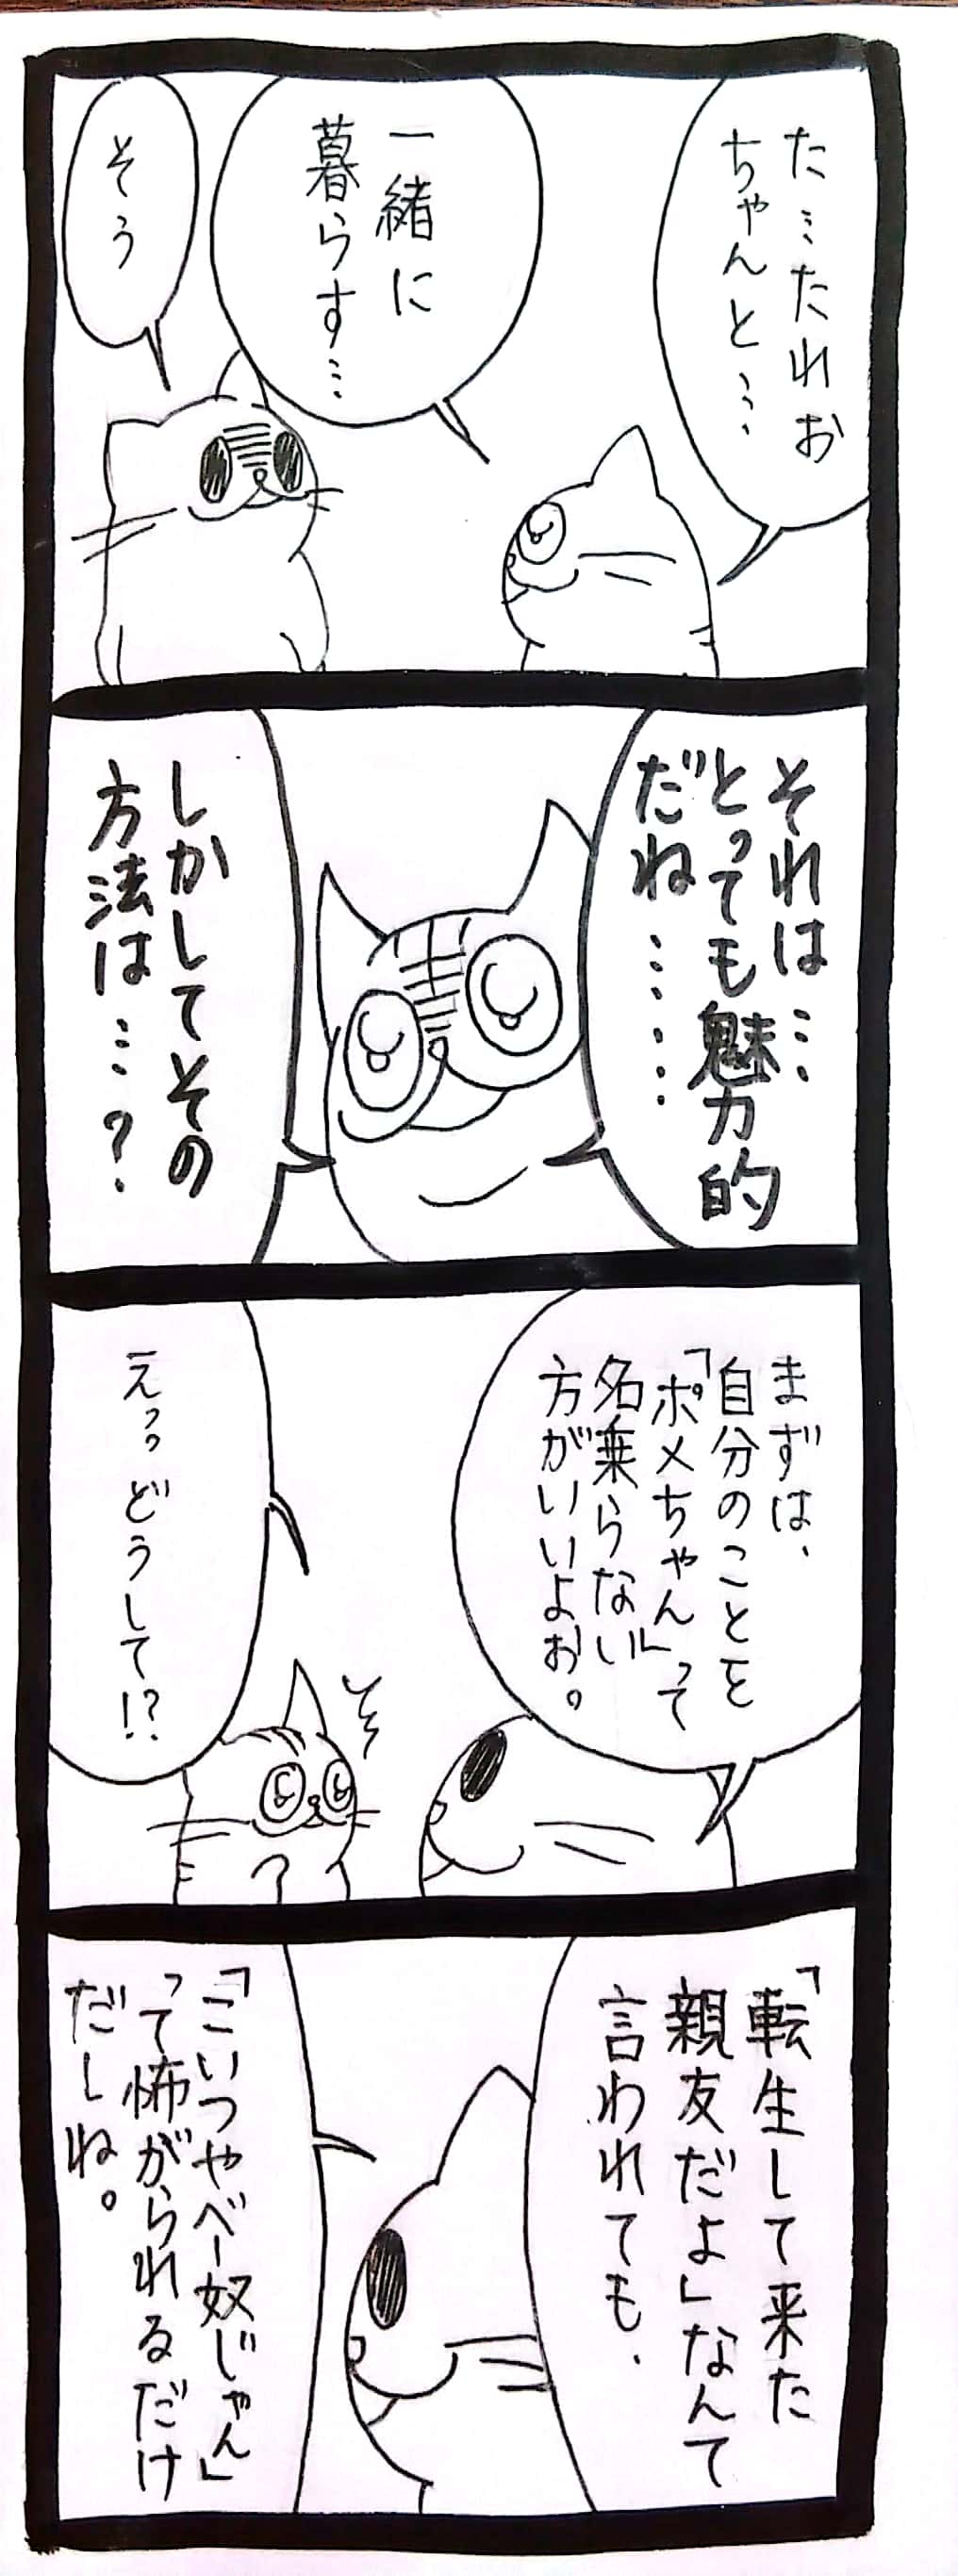 た…たれお
ちゃんと…
一緒に
暮らす…
そう
それは…
とっても魅力的
だね……
しかしてその
方法は…？
まずは、
自分のことを
「ポメちゃん」って
名乗らない
方がいいよお。
えっ、どうして!?
「転生して来た
親友だよ」なんて
言われても、
「こいつやべー奴じゃん」
って怖がられるだけ
だしね。